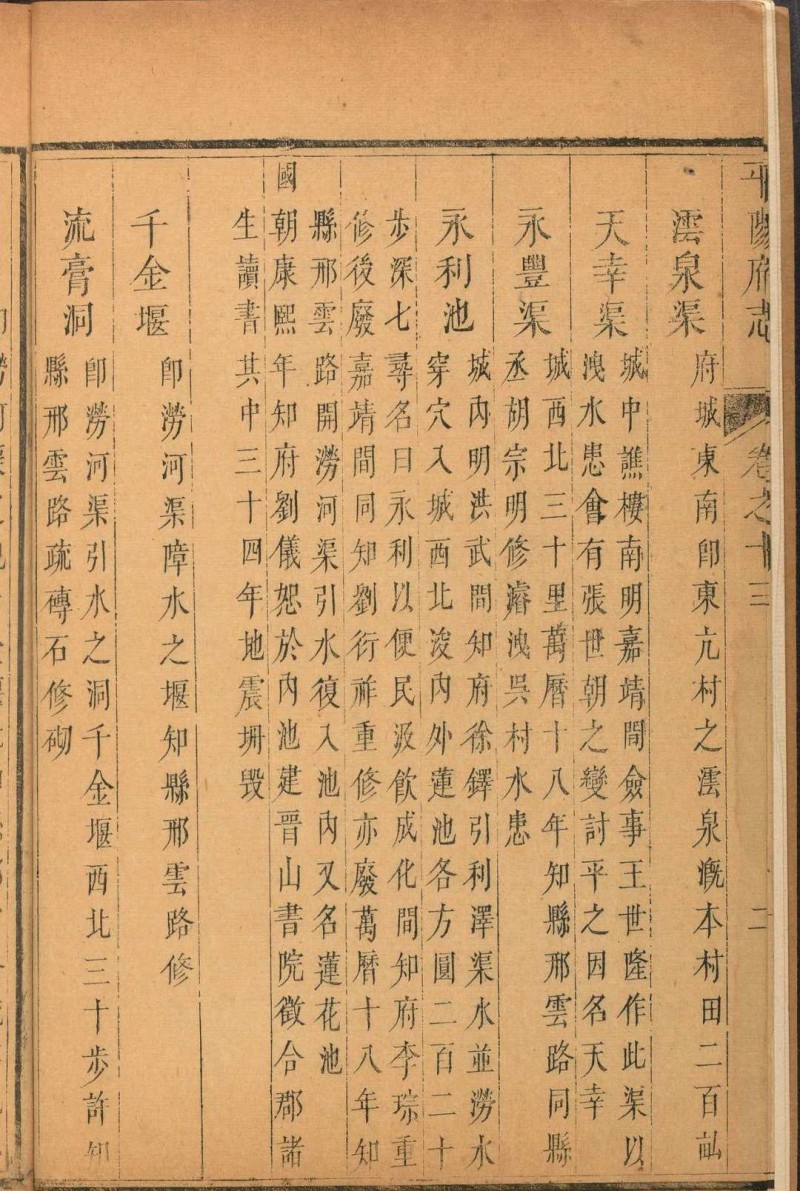 平陽府志 卷之十三 二
澐泉渠 府城東南卽東亢村之澐泉漑本村田二百畆
天幸渠 城中譙樓南明嘉靖間僉事王世隆作此渠以
洩水患會有張世朝之變討平之因名天幸
永豐渠 城西北三十里萬曆十八年知縣邢雲路同縣
丞胡宗明修濬洩吳村水患
永利池 城內明洪武間知府徐鐸引利澤渠水並澇水
穿穴入城西北浚內外蓮池各方圓二百二十
步深七尋名曰永利以便民汲飮成化間知府李琮重
修後廢嘉靖間同知劉衍祚重修亦廢萬曆十八年知
縣邢雲路開澇河渠引水復入池內又名蓮花池
國朝康熙年知府劉儀恕於內池建晉山書院徵合郡諸
生讀書其中三十四年地震坍毀
千金堰 卽澇河渠障水之堰知縣邢雲路修
流膏洞 卽澇河渠引水之洞千金堰西北三十步許知
縣邢雲路疏磚石修砌